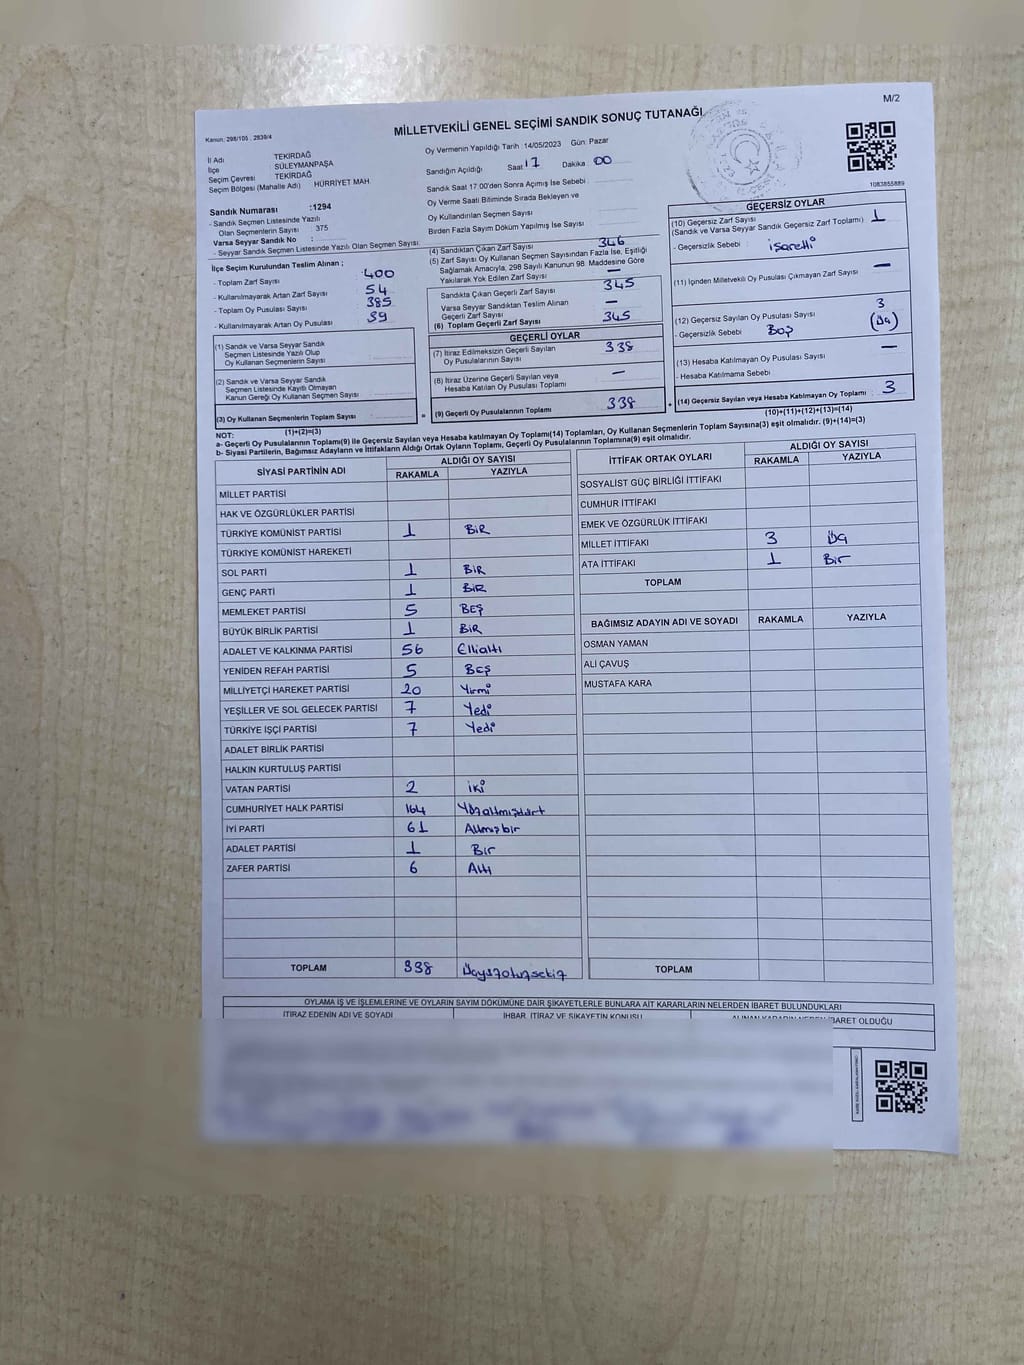 M/2
Kanun; 298/105 , 2839/4
MİLLETVEKİLİ GENEL SEÇİMİ SANDIK SONUÇ TUTANAĞI
1083855889
İl Adı TEKİRDAĞ
İlçe SÜLEYMANPAŞA
Seçim Çevresi TEKİRDAĞ
Seçim Bölgesi (Mahalle Adı) HÜRRİYET MAH
Sandık Numarası :1294
- Sandık Seçmen Listesinde Yazılı
Olan Seçmenlerin Sayısı 375
Varsa Seyyar Sandık No :
- Seyyar Sandık Seçmen Listesinde Yazılı Olan Seçmen Sayısı
İlçe Seçim Kurulundan Teslim Alınan ;
- Toplam Zarf Sayısı 400
- Kullanılmayarak Artan Zarf Sayısı 54
- Toplam Oy Pusulası Sayısı 385
- Kullanılmayarak Artan Oy Pusulası 39
(1) Sandık ve Varsa Seyyar Sandık
Seçmen Listesinde Yazılı Olup
Oy Kullanan Seçmenlerin Sayısı
(2) Sandık ve Varsa Seyyar Sandık
Seçmen Listesinde Kayıtlı Olmayan
Kanun Gereği Oy Kullanan Seçmen Sayısı
(3) Oy Kullanan Seçmenlerin Toplam Sayısı
(1)+(2)=(3)
Oy Vermenin Yapıldığı Tarih :14/05/2023 Gün: Pazar
Sandığın Açıldığı Saat 17 Dakika 00
Sandık Saat 17.00'den Sonra Açılmış İse Sebebi
Oy Verme Saati Bitiminde Sırada Bekleyen ve
Oy Kullandırılan Seçmen Sayısı
Birden Fazla Sayım Döküm Yapılmış İse Sayısı
(4) Sandıktan Çıkan Zarf Sayısı 346
(5) Zarf Sayısı Oy Kullanan Seçmen Sayısından Fazla İse, Eşitliği
Sağlamak Amacıyla, 298 Sayılı Kanunun 98. Maddesine Göre
Yakılarak Yok Edilen Zarf Sayısı —
Sandıkta Çıkan Geçerli Zarf Sayısı 345
Varsa Seyyar Sandıktan Teslim Alınan
Geçerli Zarf Sayısı —
(6) Toplam Geçerli Zarf Sayısı 345
GEÇERLİ OYLAR
(7) İtiraz Edilmeksizin Geçerli Sayılan
Oy Pusulalarının Sayısı 338
(8) İtiraz Üzerine Geçerli Sayılan veya
Hesaba Katılan Oy Pusulası Toplamı —
= (9) Geçerli Oy Pusulalarının Toplamı 338 +
GEÇERSİZ OYLAR
(10) Geçersiz Zarf Sayısı 1
(Sandık ve Varsa Seyyar Sandık Geçersiz Zarf Toplamı)
- Geçersizlik Sebebi : işaretli
(11) İçinden Milletvekili Oy Pusulası Çıkmayan Zarf Sayısı —
(12) Geçersiz Sayılan Oy Pusulası Sayısı 3
- Geçersizlik Sebebi Boş (üç)
(13) Hesaba Katılmayan Oy Pusulası Sayısı —
- Hesaba Katılmama Sebebi
(14) Geçersiz Sayılan veya Hesaba Katılmayan Oy Toplamı 3
(10)+(11)+(12)+(13)=(14)
NOT:
a- Geçerli Oy Pusulalarının Toplamı(9) ile Geçersiz Sayılan veya Hesaba katılmayan Oy Toplamı(14) Toplamları, Oy Kullanan Seçmenlerin Toplam Sayısına(3) eşit olmalıdır. (9)+(14)=(3)
b- Siyasi Partilerin, Bağımsız Adayların ve İttifakların Aldığı Ortak Oyların Toplamı, Geçerli Oy Pusulalarının Toplamına(9) eşit olmalıdır.
SİYASİ PARTİNİN ADI ALDIĞI OY SAYISI
RAKAMLA YAZIYLA
MİLLET PARTİSİ
HAK VE ÖZGÜRLÜKLER PARTİSİ
TÜRKİYE KOMÜNİST PARTİSİ 1 BİR
TÜRKİYE KOMÜNİST HAREKETİ
SOL PARTİ 1 BİR
GENÇ PARTİ 1 BİR
MEMLEKET PARTİSİ 5 BEŞ
BÜYÜK BİRLİK PARTİSİ 1 BİR
ADALET VE KALKINMA PARTİSİ 56 Ellialtı
YENİDEN REFAH PARTİSİ 5 BEŞ
MİLLİYETÇİ HAREKET PARTİSİ 20 Yirmi
YEŞİLLER VE SOL GELECEK PARTİSİ 7 Yedi
TÜRKİYE İŞÇİ PARTİSİ 7 Yedi
ADALET BİRLİK PARTİSİ
HALKIN KURTULUŞ PARTİSİ
VATAN PARTİSİ 2 iki
CUMHURİYET HALK PARTİSİ 164 Yüzaltmışdört
İYİ PARTİ 61 Altmışbir
ADALET PARTİSİ 1 Bir
ZAFER PARTİSİ 6 Altı
TOPLAM 338 Üçyüzotuzsekiz
İTTİFAK ORTAK OYLARI ALDIĞI OY SAYISI
RAKAMLA YAZIYLA
SOSYALİST GÜÇ BİRLİĞİ İTTİFAKI
CUMHUR İTTİFAKI
EMEK VE ÖZGÜRLÜK İTTİFAKI
MİLLET İTTİFAKI 3 üç
ATA İTTİFAKI 1 Bir
TOPLAM
BAĞIMSIZ ADAYIN ADI VE SOYADI RAKAMLA YAZIYLA
OSMAN YAMAN
ALİ ÇAVUŞ
MUSTAFA KARA
TOPLAM
OYLAMA İŞ VE İŞLEMLERİNE VE OYLARIN SAYIM DÖKÜMÜNE DAİR ŞİKAYETLERLE BUNLARA AİT KARARLARIN NELERDEN İBARET BULUNDUKLARI
İTİRAZ EDENİN ADI VE SOYADI İHBAR, İTİRAZ VE ŞİKAYETİN KONUSU ALINAN KARARIN NEDEN İBARET OLDUĞU